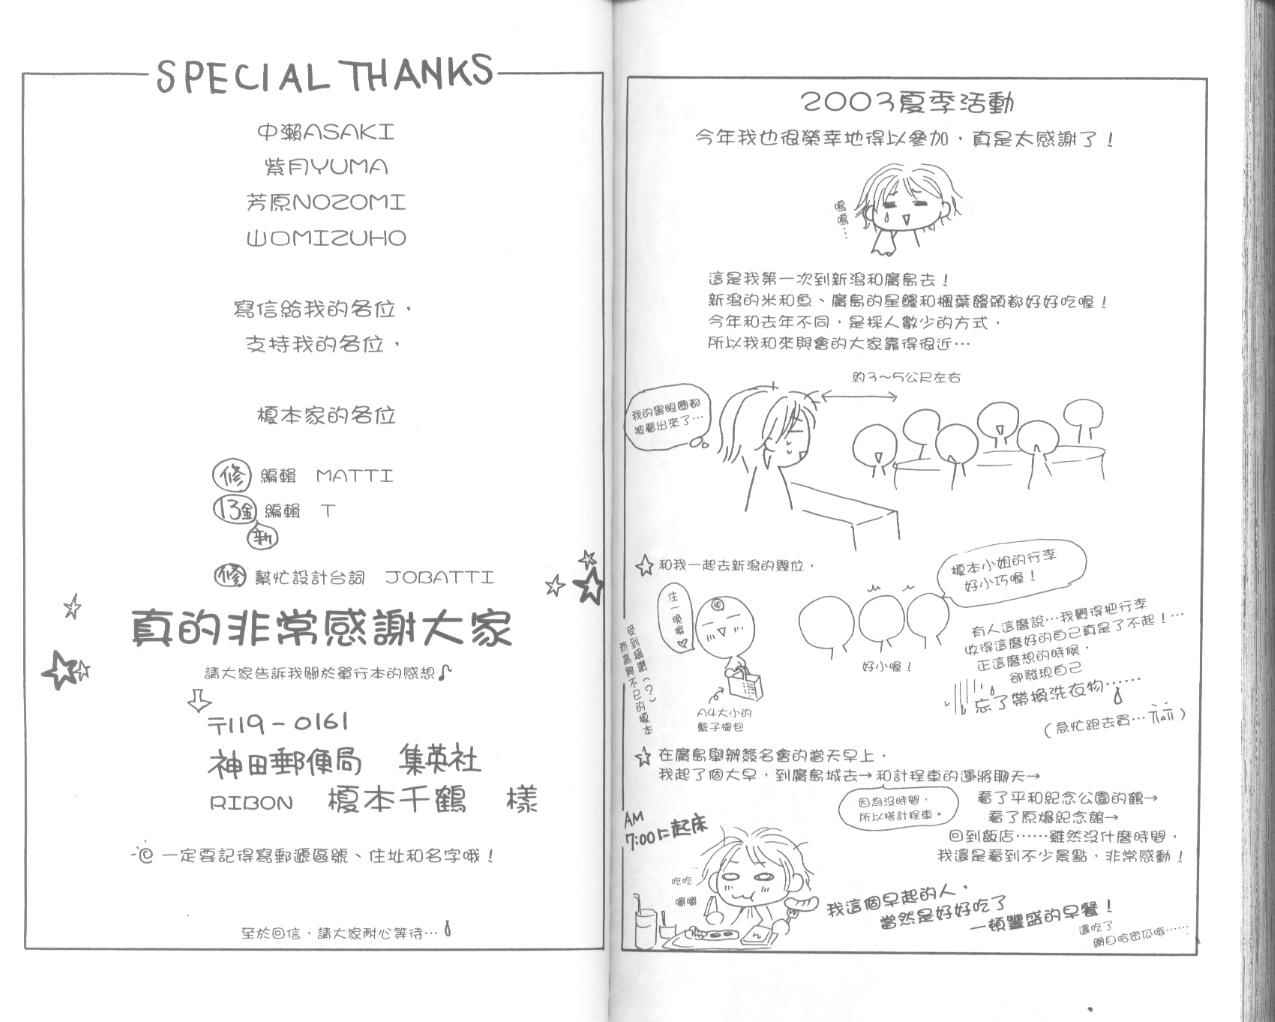 SPECIAL THANKS
中瀨ASAKI
紫月YUMA
芳原NOZOMI
山口MIZUHO
寫信給我的各位，
支持我的各位，
榎本家的各位
修 編輯 MATTI
13金 編輯 T
新
修 幫忙設計台詞 JOBATTI
真的非常感謝大家
請大家告訴我關於單行本的感想♪
〒119－0161
神田郵便局 集英社
RIBON 榎本千鶴 樣
一定要記得寫郵遞區號、住址和名字哦！
至於回信，請大家耐心等待…
2003夏季活動
今年我也很榮幸地得以參加，真是太感謝了！
嗚嗚…
這是我第一次到新潟和廣島去！
新潟的米和魚、廣島的星鰻和楓葉饅頭都好好吃喔！
今年和去年不同，是採人數少的方式，
所以我和來與會的大家靠得很近…
約3～5公尺左右
我的黑眼圈都
被看出來了…
☆和我一起去新潟的幾位，
榎本小姐的行李
好小巧喔！
住一晚嘛♡
受到稱讚(？)
而高興不已的榎本
好小喔！
A4大小的
籃子提包
有人這麼說…我覺得把行李
收得這麼好的自己真是了不起！…
正這麼想的時候，
卻發現自己
忘了帶換洗衣物……
(急忙跑去買…)
☆在廣島舉辦簽名會的當天早上，
我起了個大早，到廣島城去→和計程車的運將聊天→
因為沒時間，
所以搭計程車。
看了平和紀念公園的鶴→
看了原爆紀念館→
回到飯店……雖然沒什麼時間，
我還是看到不少景點，非常感動！
AM
7:00に起床
吃吃
嚼嚼
我這個早起的人，
當然是好好吃了
一頓豐盛的早餐！
還吃了